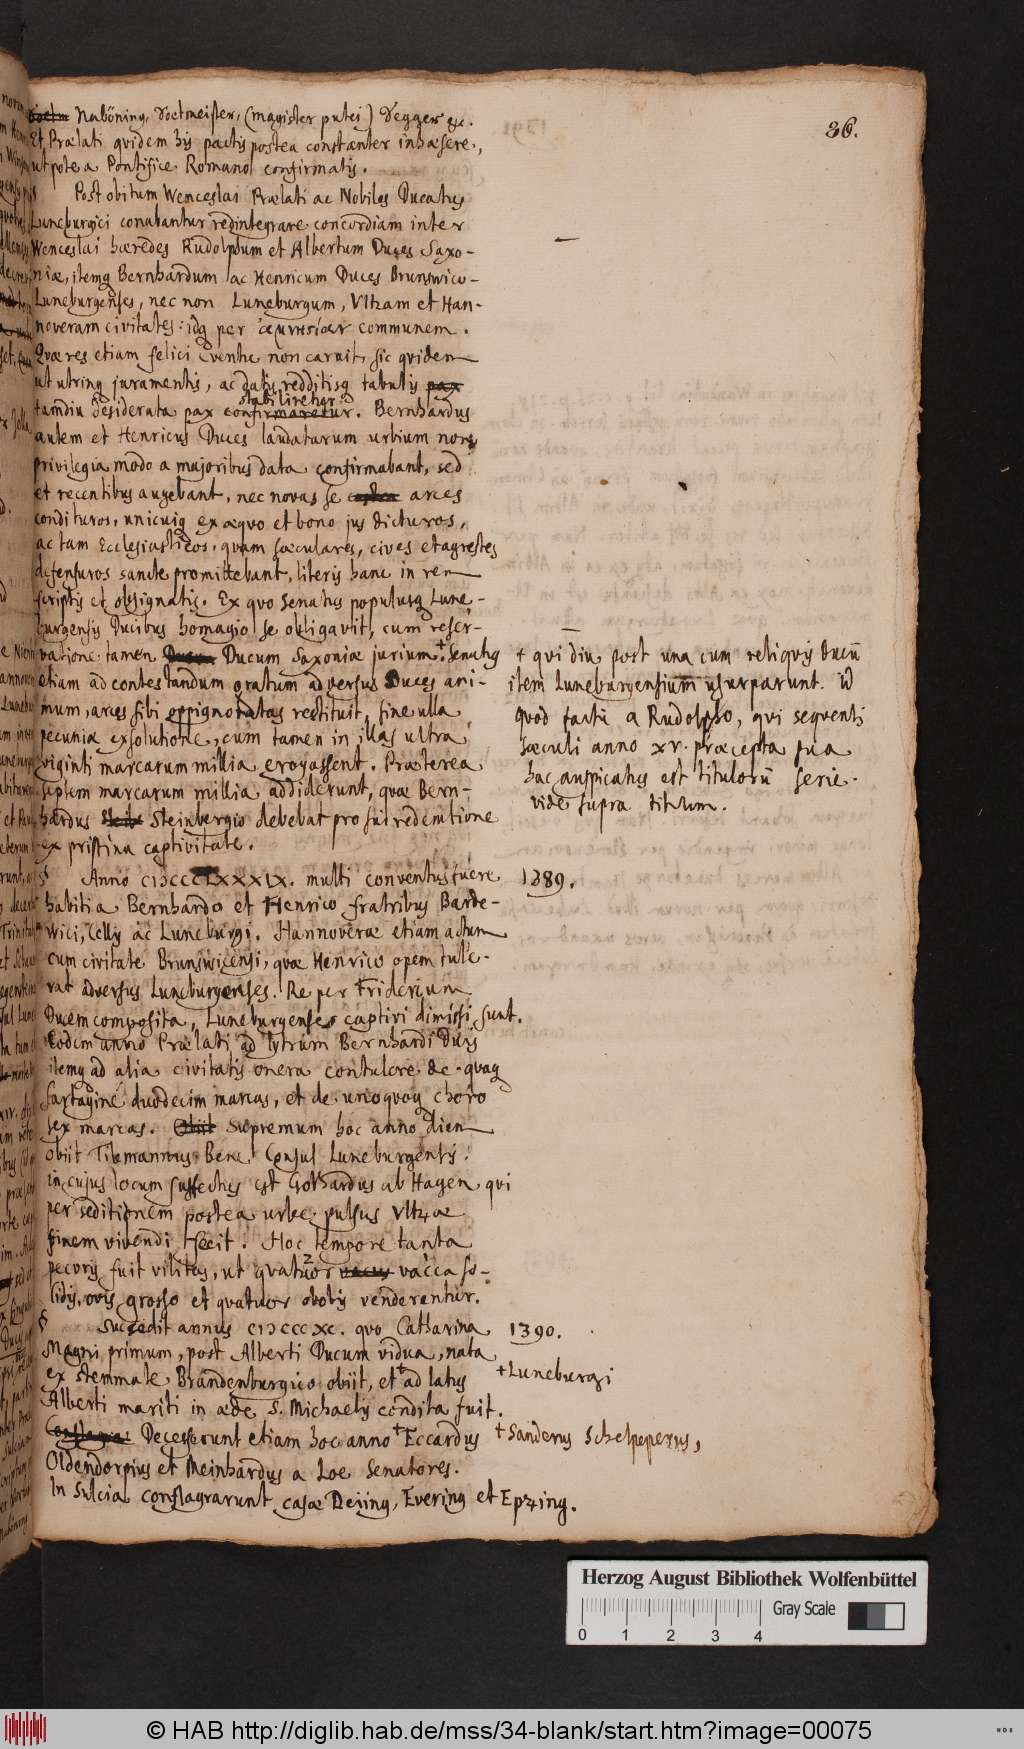 36.
Naböning, Soetmeister, (magister putei) Segger &c.
Et Prælati qvidem his pactis postea constanter inhæsere,
utpote a Pontifice Romano confirmatis.
Post obitum Wenceslai Prælati ac Nobiles Ducatus
Luneburgici conabantur redintegrare concordiam inter
Wenceslai hæredes Rudolphum et Albertum Duces Saxo-
niæ, itemq Bernhardum ac Henricum Duces Brunswico-
Luneburgenses, nec non Luneburgum, Ultzam et Han-
noveram civitates: idq per communem.
Quæ res etiam felici eventu non caruit, sic qvidem
ut utrinq juramentis, ac datis redditisq tabulis pax
stabiliretur
tamdiu desiderata pax confirmaretur. Bernhardus
autem et Henricus Duces laudatarum urbium non
privilegia modo a majoribus data confirmabant, sed
et recentibus augebant, nec novas se castra arces
condituros, unicuiq ex æquo et bono jus dicturos,
ac tam Ecclesiasticos, quam sæculares, cives et agrestes
defensuros sancte promittebant, literis hanc in rem
scriptis et obsignatis. Ex qvo Senatus populusq Lune-
burgensis Ducibus homagio se obligavit, cum reser-
vatione tamen Ducum Saxoniæ jurium. + Senatus
etiam ad contestandum gratum adversus Duces ani-
mum, arces sibi oppignoratas restituit, sine ulla
pecuniæ exsolutione, cum tamen in illas ultra
viginti marcarum millia erogassent. Præterea
septem marcarum millia addiderunt, quæ Bern-
hardus Steinbergio debebat pro sui redemtione
ex pristina captivitate.
+ qvi diu post una cum reliqvis Ducū
item Luneburgensium usurparunt. Id
quod factū a Rudolpho, qvi seqventi
sæculi anno xv. præcepta sua
hac auspicatus est titulorū serie.
vide supra titulum.
§ Anno CIƆCCCLXXXIX. multi conventus fuere
1389.
habiti a Bernhardo et Henrico fratribus Barde-
wici, Cellis ac Luneburgi. Hannoveræ etiam actum
cum civitate Brunswicensi, quæ Henrico opem tule-
rat adversus Luneburgenses. Re per Fridericum
Ducem composita, Luneburgenses captivi dimissi sunt.
Eodem anno Prælati ad lytrum Bernhardi Ducis
itemq ad alia civitatis onera contulere de quaq
sartagine duodecim marcas, et de unoquoq choro
sex marcas. Obiit Supremum hoc anno diem
obiit Tilemannus Bene Consul Luneburgensis:
in cujus locum suffectus est Gothardus ab Hagen, qvi
per seditionem postea urbe pulsus Ultzæ
finem vivendi fecit. Hoc tempore tanta
pecoris fuit vilitas, ut qvatuor vacca so-
lidis, ovis grosso et qvatuor obolis venderentur.
§ Succedit annus CIƆCCCXC. quo Catharina
1390.
Magni primum, post Alberti Ducum vidua, nata
ex stemmate Brandenburgico obiit, et + ad latus
+ Luneburgi
Alberti mariti in æde S. Michaelis condita fuit.
Conflagrar Decesserunt etiam hoc anno + Eccardus
+ Sanderus Schelpeperus,
Oldendorpius et Meinhardus a Loe Senatores.
In Sulcia conflagrarunt casæ Deiing, Evering et Epzing.
Herzog August Bibliothek Wolfenbüttel
Gray Scale
0 1 2 3 4
© HAB http://diglib.hab.de/mss/34-blank/start.htm?image=00075